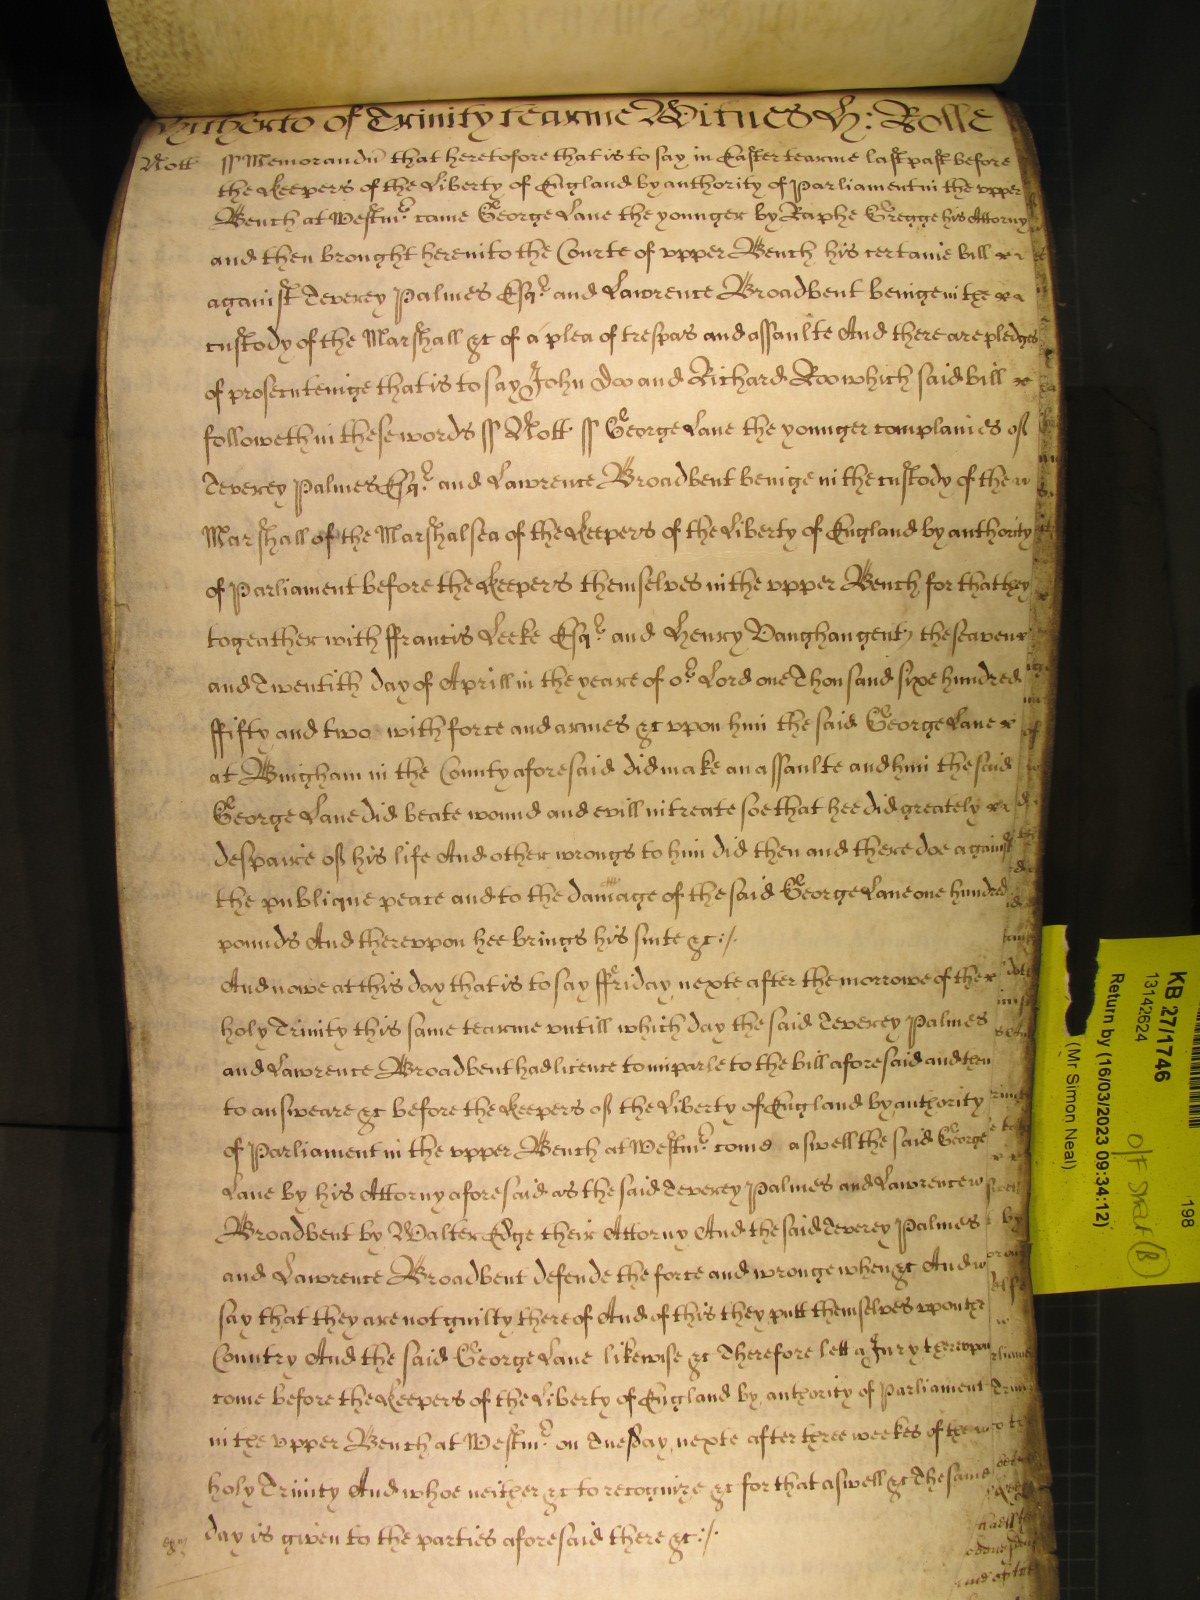 hitherto of Trinity tearme Witnes H: Rolle
Nott ss Memorandū that heretofore that is to say in Easter tearme last past before
the Keepers of the Liberty of England by authority of Parliament in the vpper
Bench at Westmr. came George Lane the younger by Raphe Gregge his Attorny
and then brought here into the Courte of vpper Bench his certaine bill
against Teverey Palmes Esqr. and Lawrence Broadbent beinge in the
custody of the Marshall &c of a plea of trespas and assaulte And there are pledges
of prosecuteinge that is to say John Doo and Richard Roo which said bill
followeth in these words ss Nott ss George Lane the younger complaines of
Teverey Palmes Esqr. and Lawrence Broadbent beinge in the custody of the
Marshall of the Marshalsea of the Keepers of the Liberty of England by authority
of Parliament before the Keepers themselves in the vpper Bench for that they
togeather with ffrancis Leeke Esqr. and Henry Vaughan gent the seaven
and Twentith day of Aprill in the yeare of or. Lord one Thousand sixe hundred
ffifty and two with force and armes &c vpon him the said George Lane
at Bingham in the County aforesaid did make an assaulte and him the said
George Lane did beate wound and evill intreate soe that hee did greately
despaire of his life And other wrongs to him did then and there doe against
the publique peace and to the damage of the said George Lane one hundred
pounds And therevpon hee brings his suite &c:/.
And nowe at this day that is to say ffriday nexte after the morrowe of the
holy Trinity this same tearme vntill which day the said Teverey Palmes
and Lawrence Broadbent had licence to imparle to the bill aforesaid and then
to answeare &c before the Keepers of the Liberty of England by authority
of Parliament in the vpper Bench at Westmr. come aswell the said George
Lane by his Attorny aforesaid as the said Teverey Palmes and Lawrence
Broadbent by Walter Edge their Attorny And the said Teverey Palmes
and Lawrence Broadbent defende the force and wronge when &c And
say that they are not guilty thereof And of this they putt themselves vpon the
Country And the said George Lane likewise &c Therefore lett a Jury therevpon
come before the Keepers of the Liberty of England by authority of Parliament
in the vpper Bench at Westmr. on Tuesday nexte after three weekes of the
holy Trinity And whoe neither &c to recognize &c for that aswell &c The same
day is given to the parties aforesaid there &c:/.
KB 27/1746
13142624
Return by (16/03/2023 09:34:12)
(Mr Simon Neal)
198